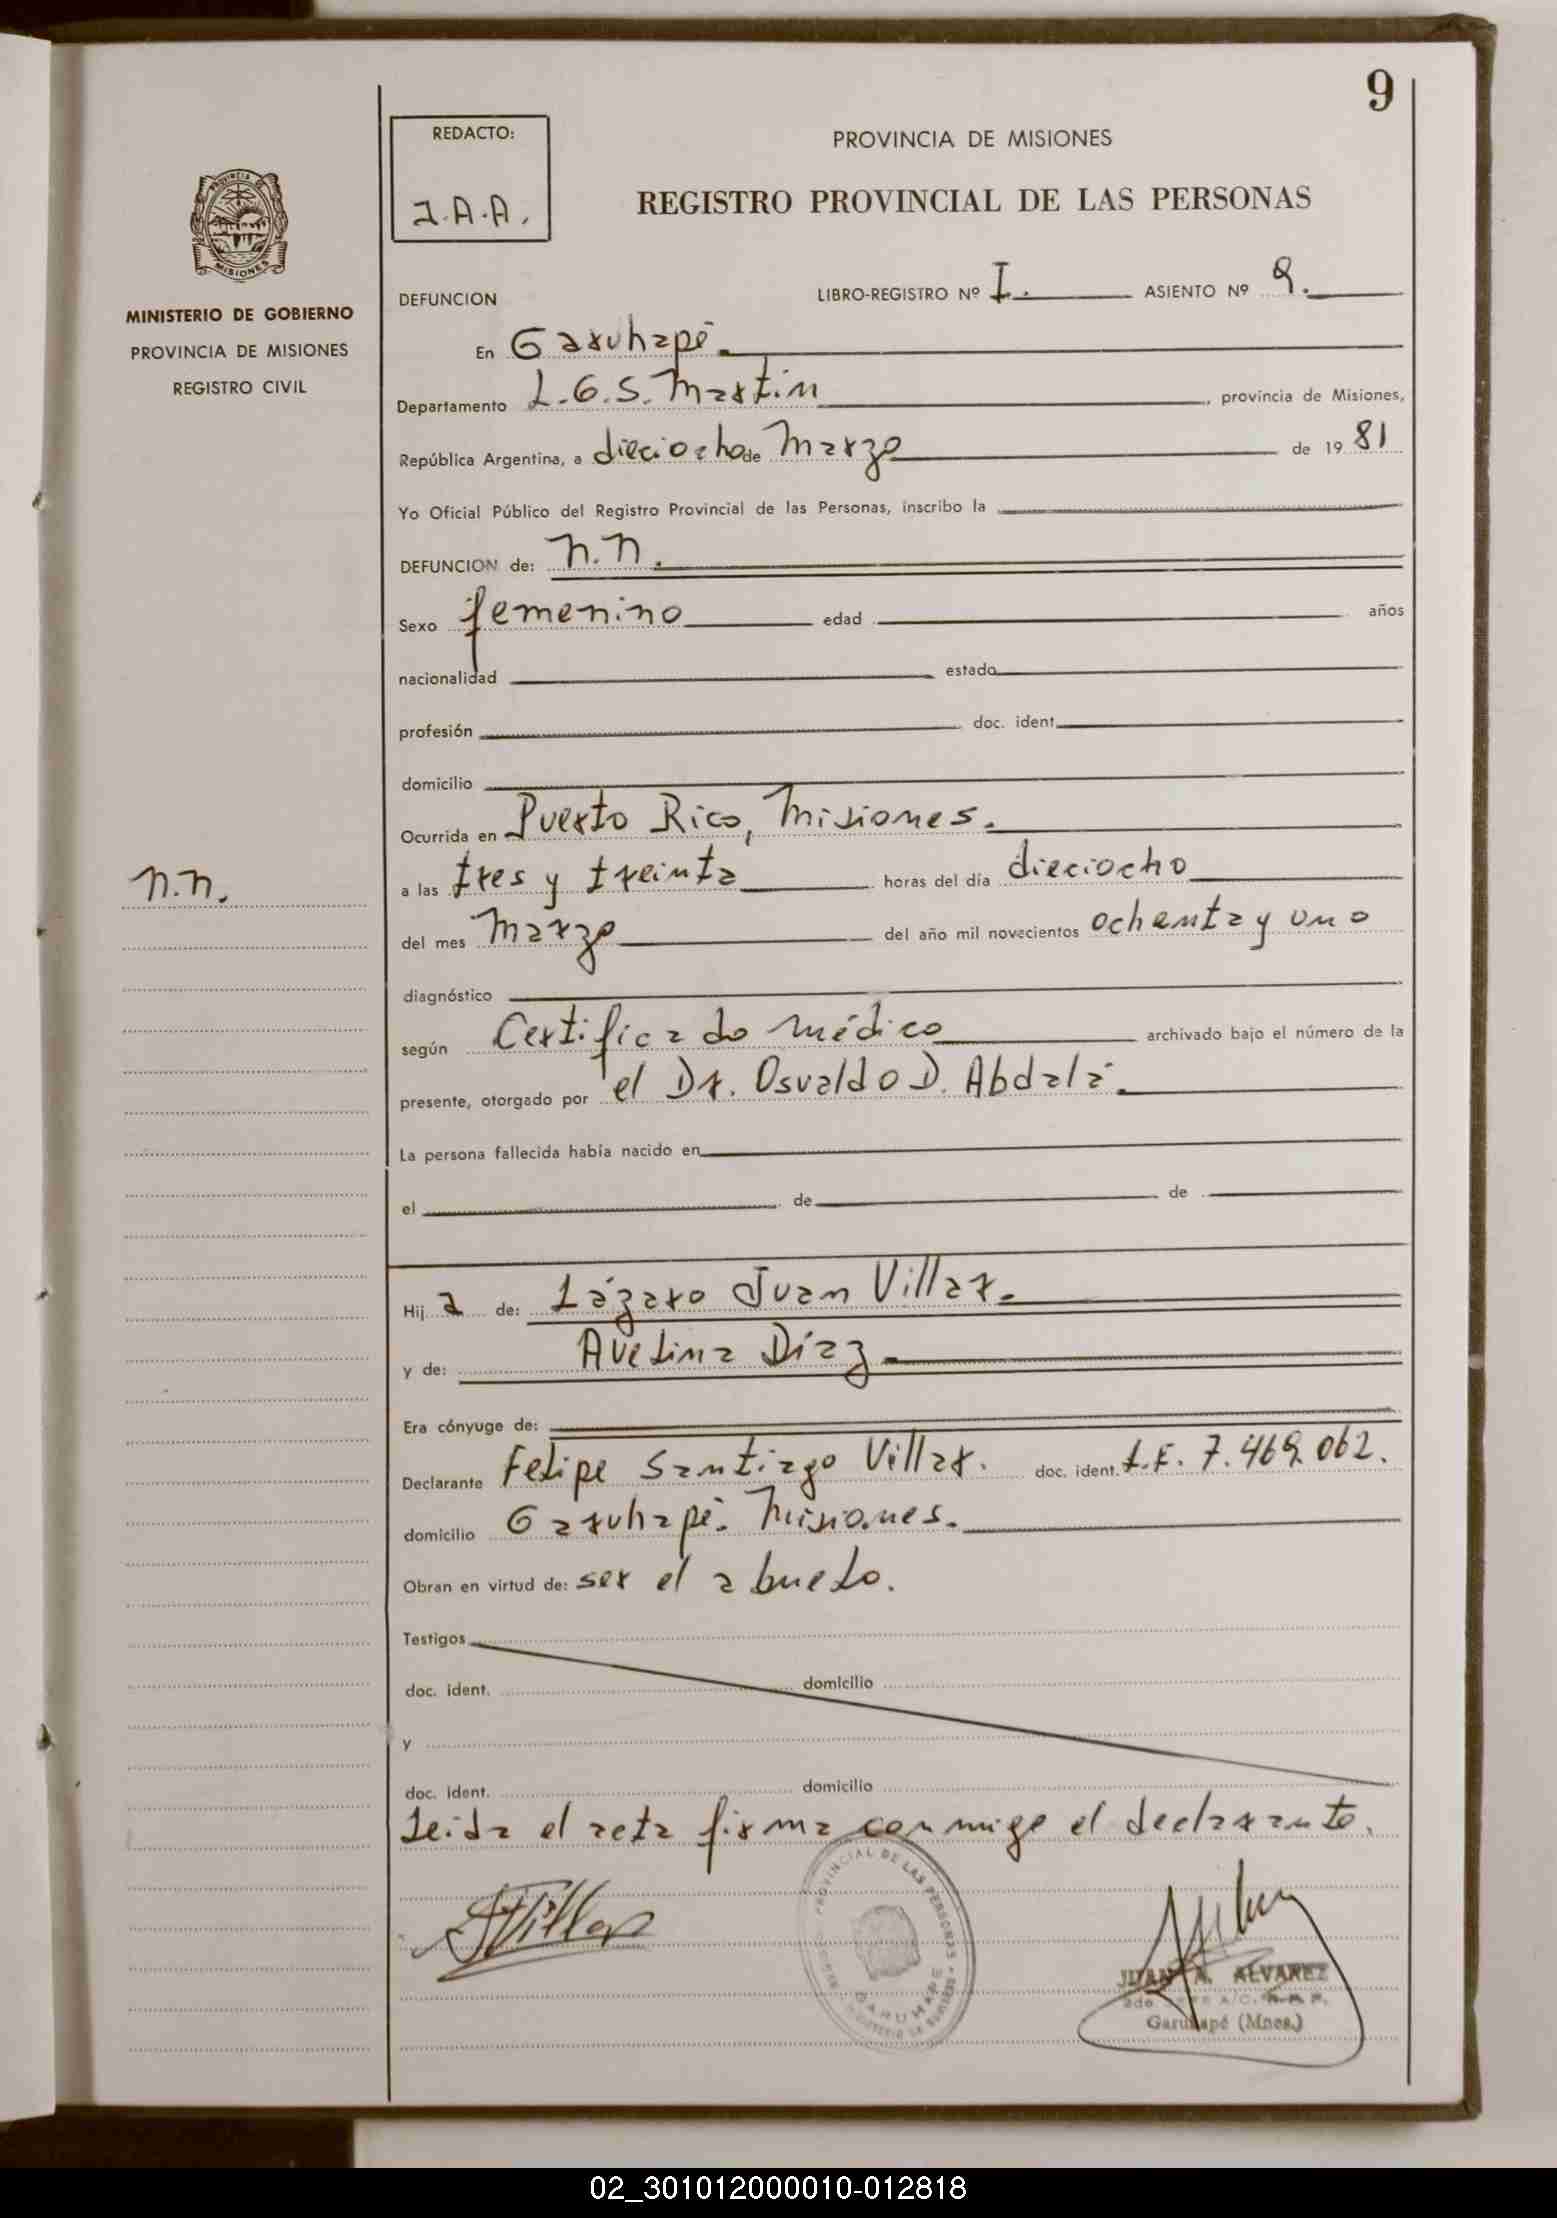 9
REDACTO:
J.A.A.
PROVINCIA DE MISIONES
REGISTRO PROVINCIAL DE LAS PERSONAS
PROVINCIA DE
MISIONES
MINISTERIO DE GOBIERNO
PROVINCIA DE MISIONES
REGISTRO CIVIL
DEFUNCION LIBRO-REGISTRO Nº I. ASIENTO Nº 9.
En Garuhapé.
Departamento L.G.S. Martin, provincia de Misiones,
República Argentina, a dieciocho de Marzo de 1981
Yo Oficial Público del Registro Provincial de las Personas, inscribo la
DEFUNCION de: N.N.
Sexo femenino edad años
nacionalidad estado
profesión doc. ident.
domicilio
Ocurrida en Puerto Rico, Misiones.
N.N.
a las tres y treinta horas del día dieciocho
del mes Marzo del año mil novecientos ochenta y uno
diagnóstico
según Certificado médico archivado bajo el número de la
presente, otorgado por el Dr. Osvaldo D. Abdala.
La persona fallecida había nacido en
el de de
Hij a de: Lázaro Juan Villar.
y de: Avelina Díaz
Era cónyuge de:
Declarante Felipe Santiago Villar. doc. ident. L.E. 7.469.062.
domicilio Garuhapé. Misiones.
Obran en virtud de: ser el abuelo.
Testigos
doc. ident. domicilio
y
doc. ident. domicilio
Leida el acta firma conmigo el declarante.
Villar
PROVINCIAL DE LAS PERSONAS
GARUHAPE
JUAN A. ALVAREZ
Garuhapé (Mnes.)
02_301012000010-012818